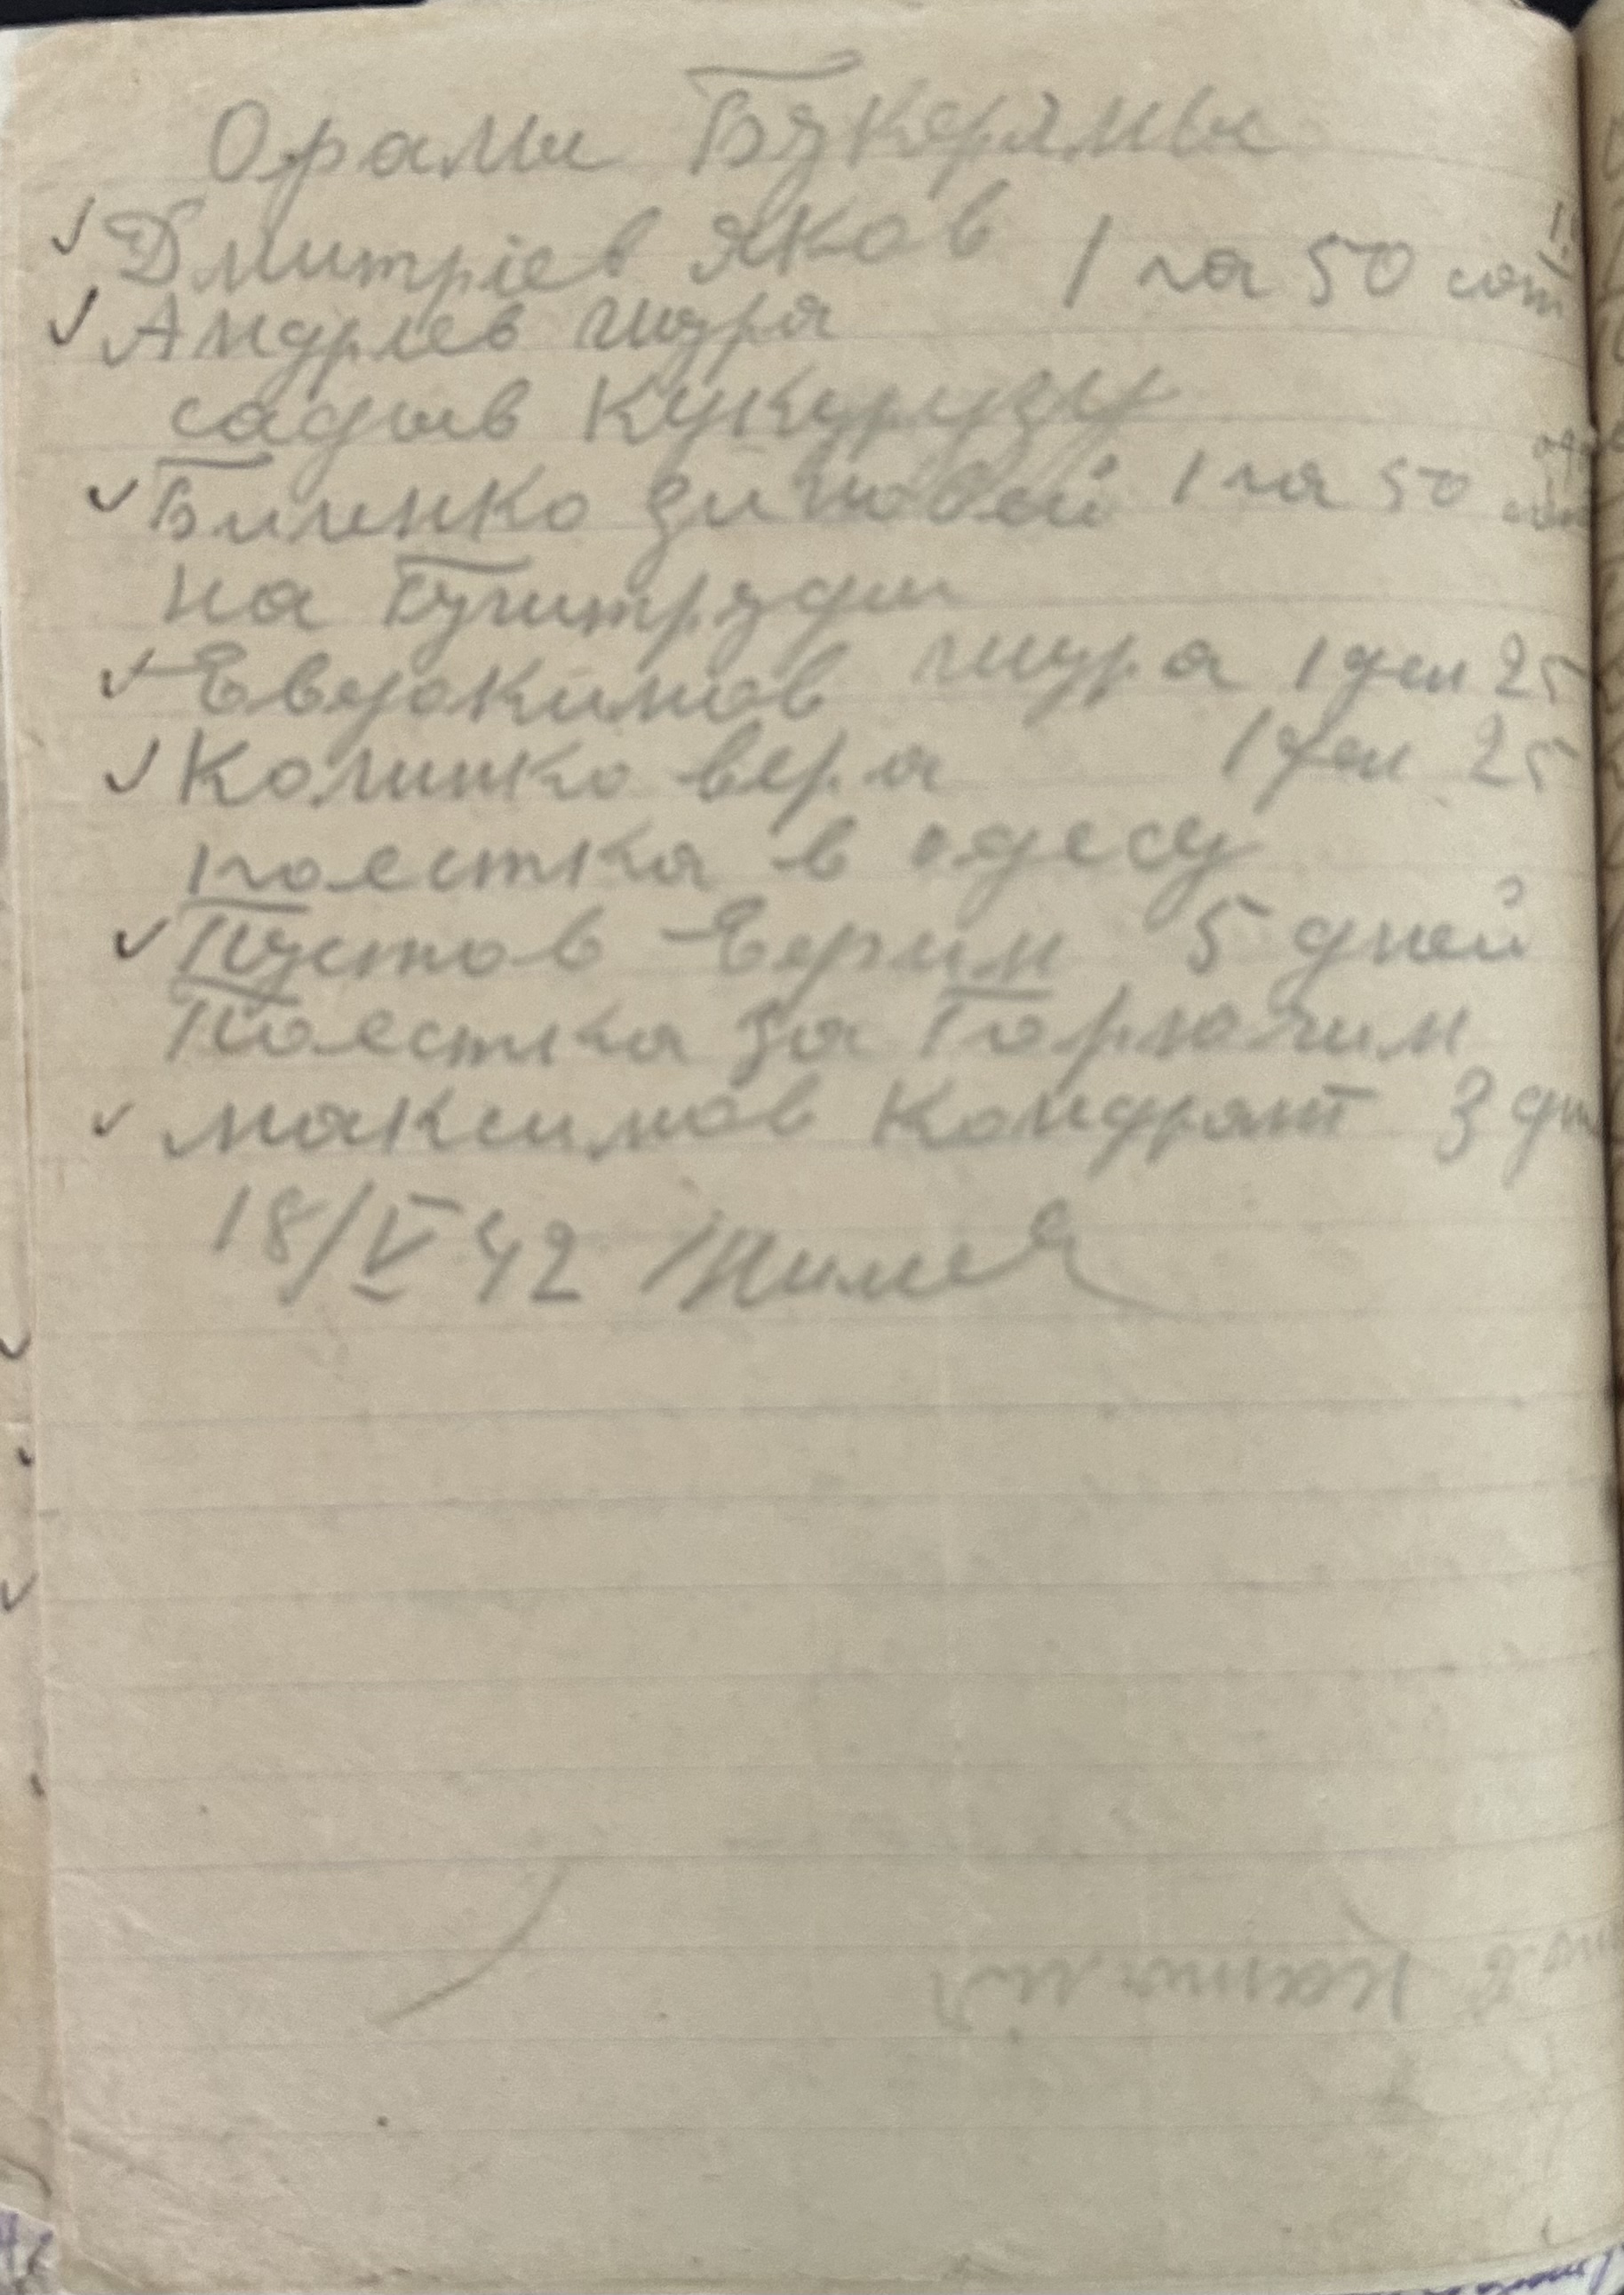 Орами Букерямы
Дмитріев Яков 1 га 50 сот
Андріев шура
садыв Кукурузу
Биленко Зиновей 1 га 50
на
Евдокимов шура 1 ден 25
Колинко вера 1 ден 25
поестка в одесу
Пустов Ефрим 5 дней
Поестка за Горючим
максимов Кондрат 3 дн
18/V 42